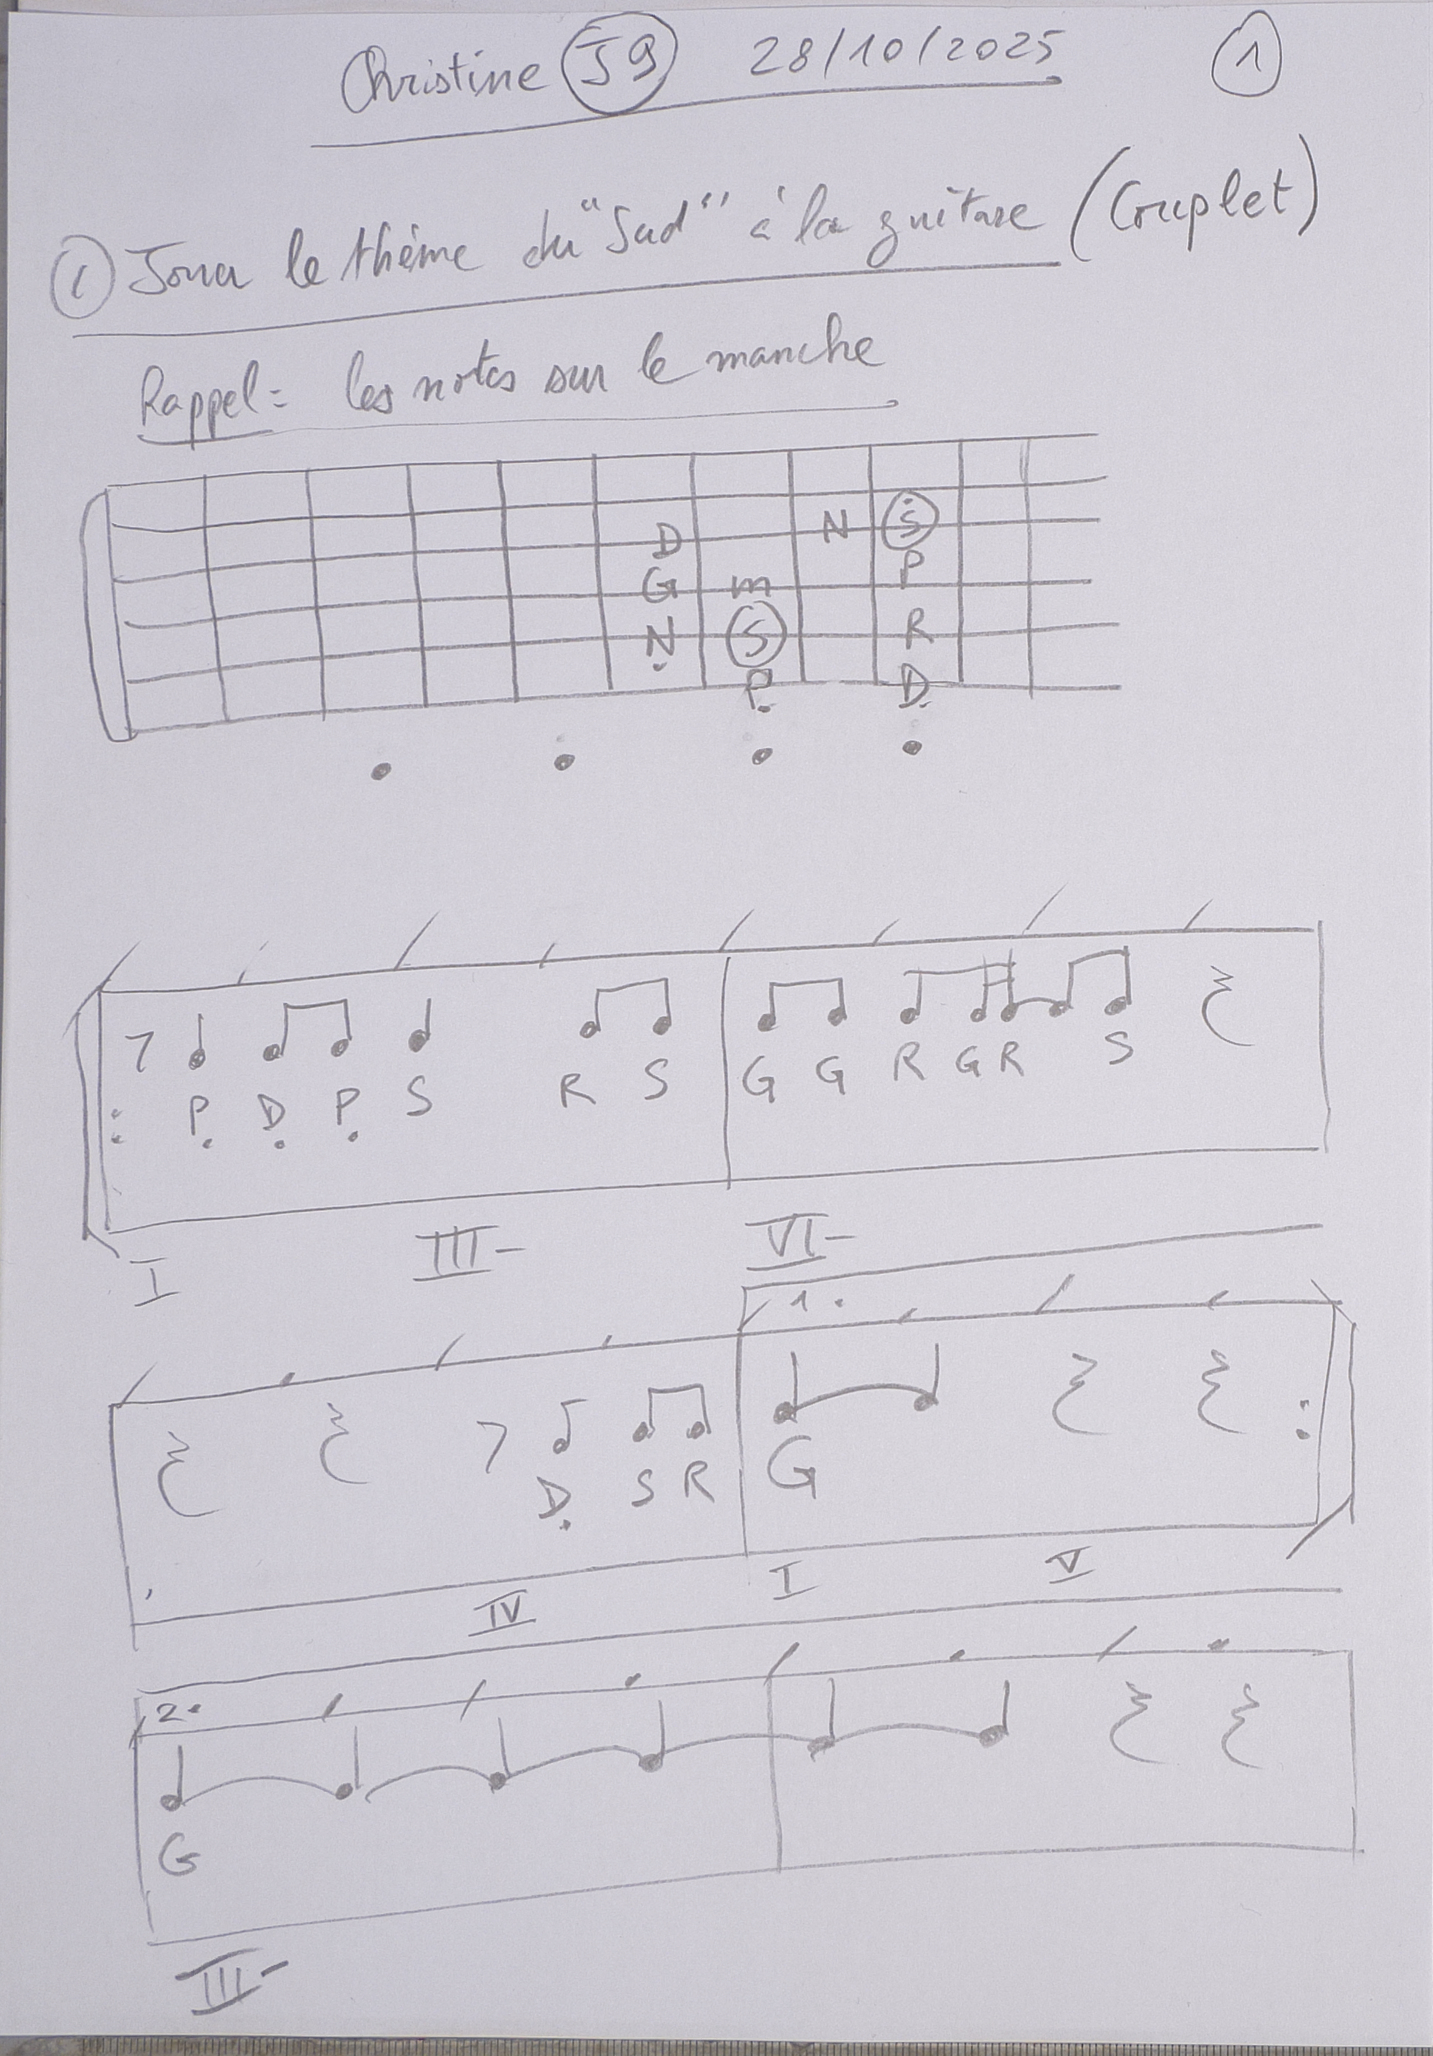 Christine J9 28/10/2025 1
1 Jouer le thème du "Sud" à la guitare (Couplet)
Rappel: les notes sur le manche
D N S
G m P
N S R
P D
7 P D P S R S G G R G R S
I III- VI-
1.
7 D S R G
IV I V
2.
G
III-